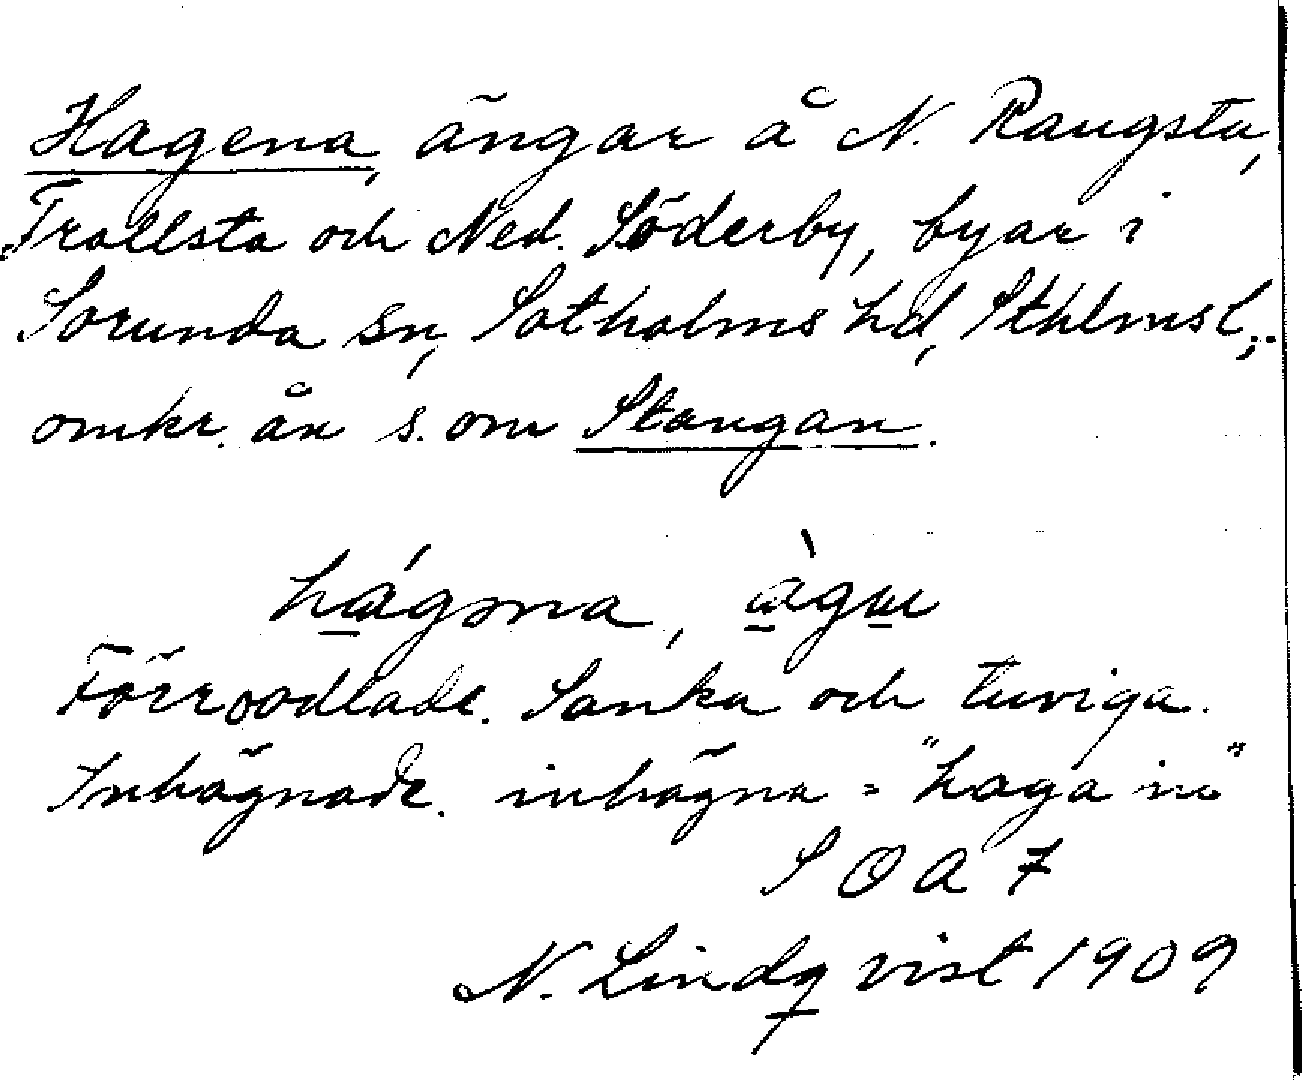 Hagena, ängar å N. Rangsta,
Trollsta och Ned. Söderby, byar i
Sorunda sn, Sotholms hd, Sthlmsl.;
omkr. ån s. om Stangan.
hágəna, àgaɹ
Förr oodlade. Sanka och tuviga.
Inhägnade. inhägna = "haga in"
S O A 7
N. Lindqvist 1909